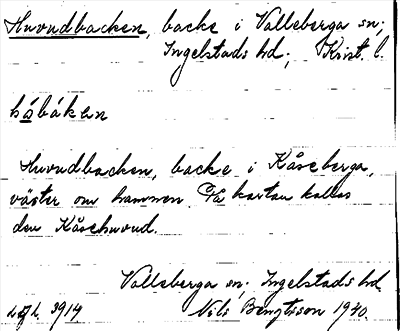 Huvudbacken, backe i Valleberga sn;
Ingelstads hd; Krist. l.
håbåken
Huvudbacken, backe i Kåseberga,
väster om hamnen. På kartan kallas
den Kåsehuvud.
Valleberga sn. Ingelstads hd
3914 Nils Bengtsson 1940.